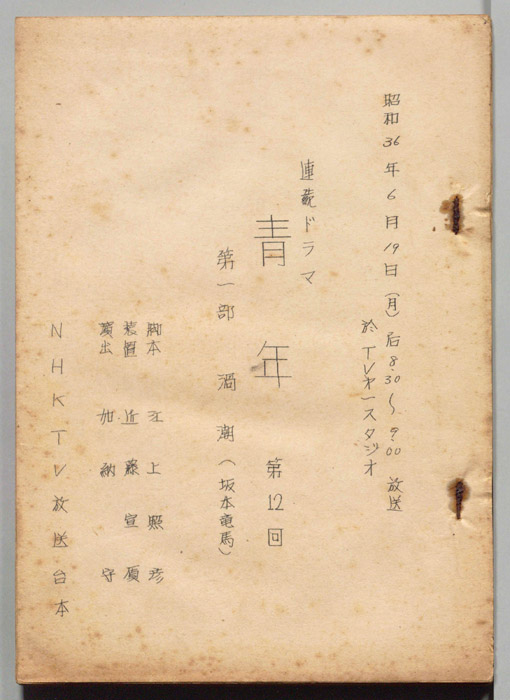 昭和36年6月19日(月)后8.30〜9.00 放送
於TVオースタジオ
連載ドラマ
青年 第12回
第一部 渦潮(坂本竜馬)
脚本 江上照彦
装置 近藤宣原
演出 加納守
NHKTV放送台本